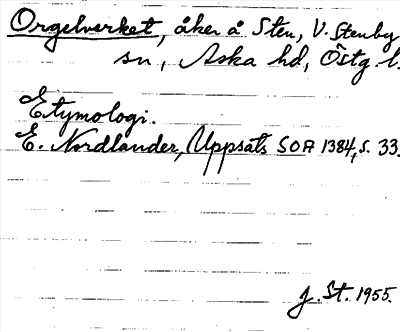 Orgelverket, åker å Sten, V. Stenby
sn, Aska hd, Östg l.
Etymologi.
E. Nordlander, Uppsats SOA 1384, s. 33.
J. St. 1955.